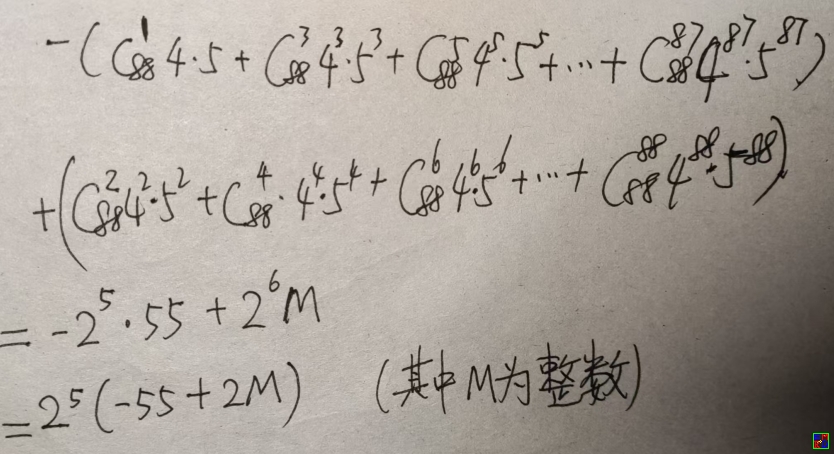 -(C₈₈¹4·5 + C₈₈³4³·5³ + C₈₈⁵4⁵·5⁵+⋯+ C₈₈⁸⁷4⁸⁷·5⁸⁷)
+(C₈₈²4²·5² + C₈₈⁴·4⁴·5⁴ + C₈₈⁶4⁶·5⁶+⋯+ C₈₈⁸⁸4⁸⁸·5⁸⁸)
= -2⁵·55 + 2⁶M
= 2⁵(-55 + 2M) (其中M为整数)